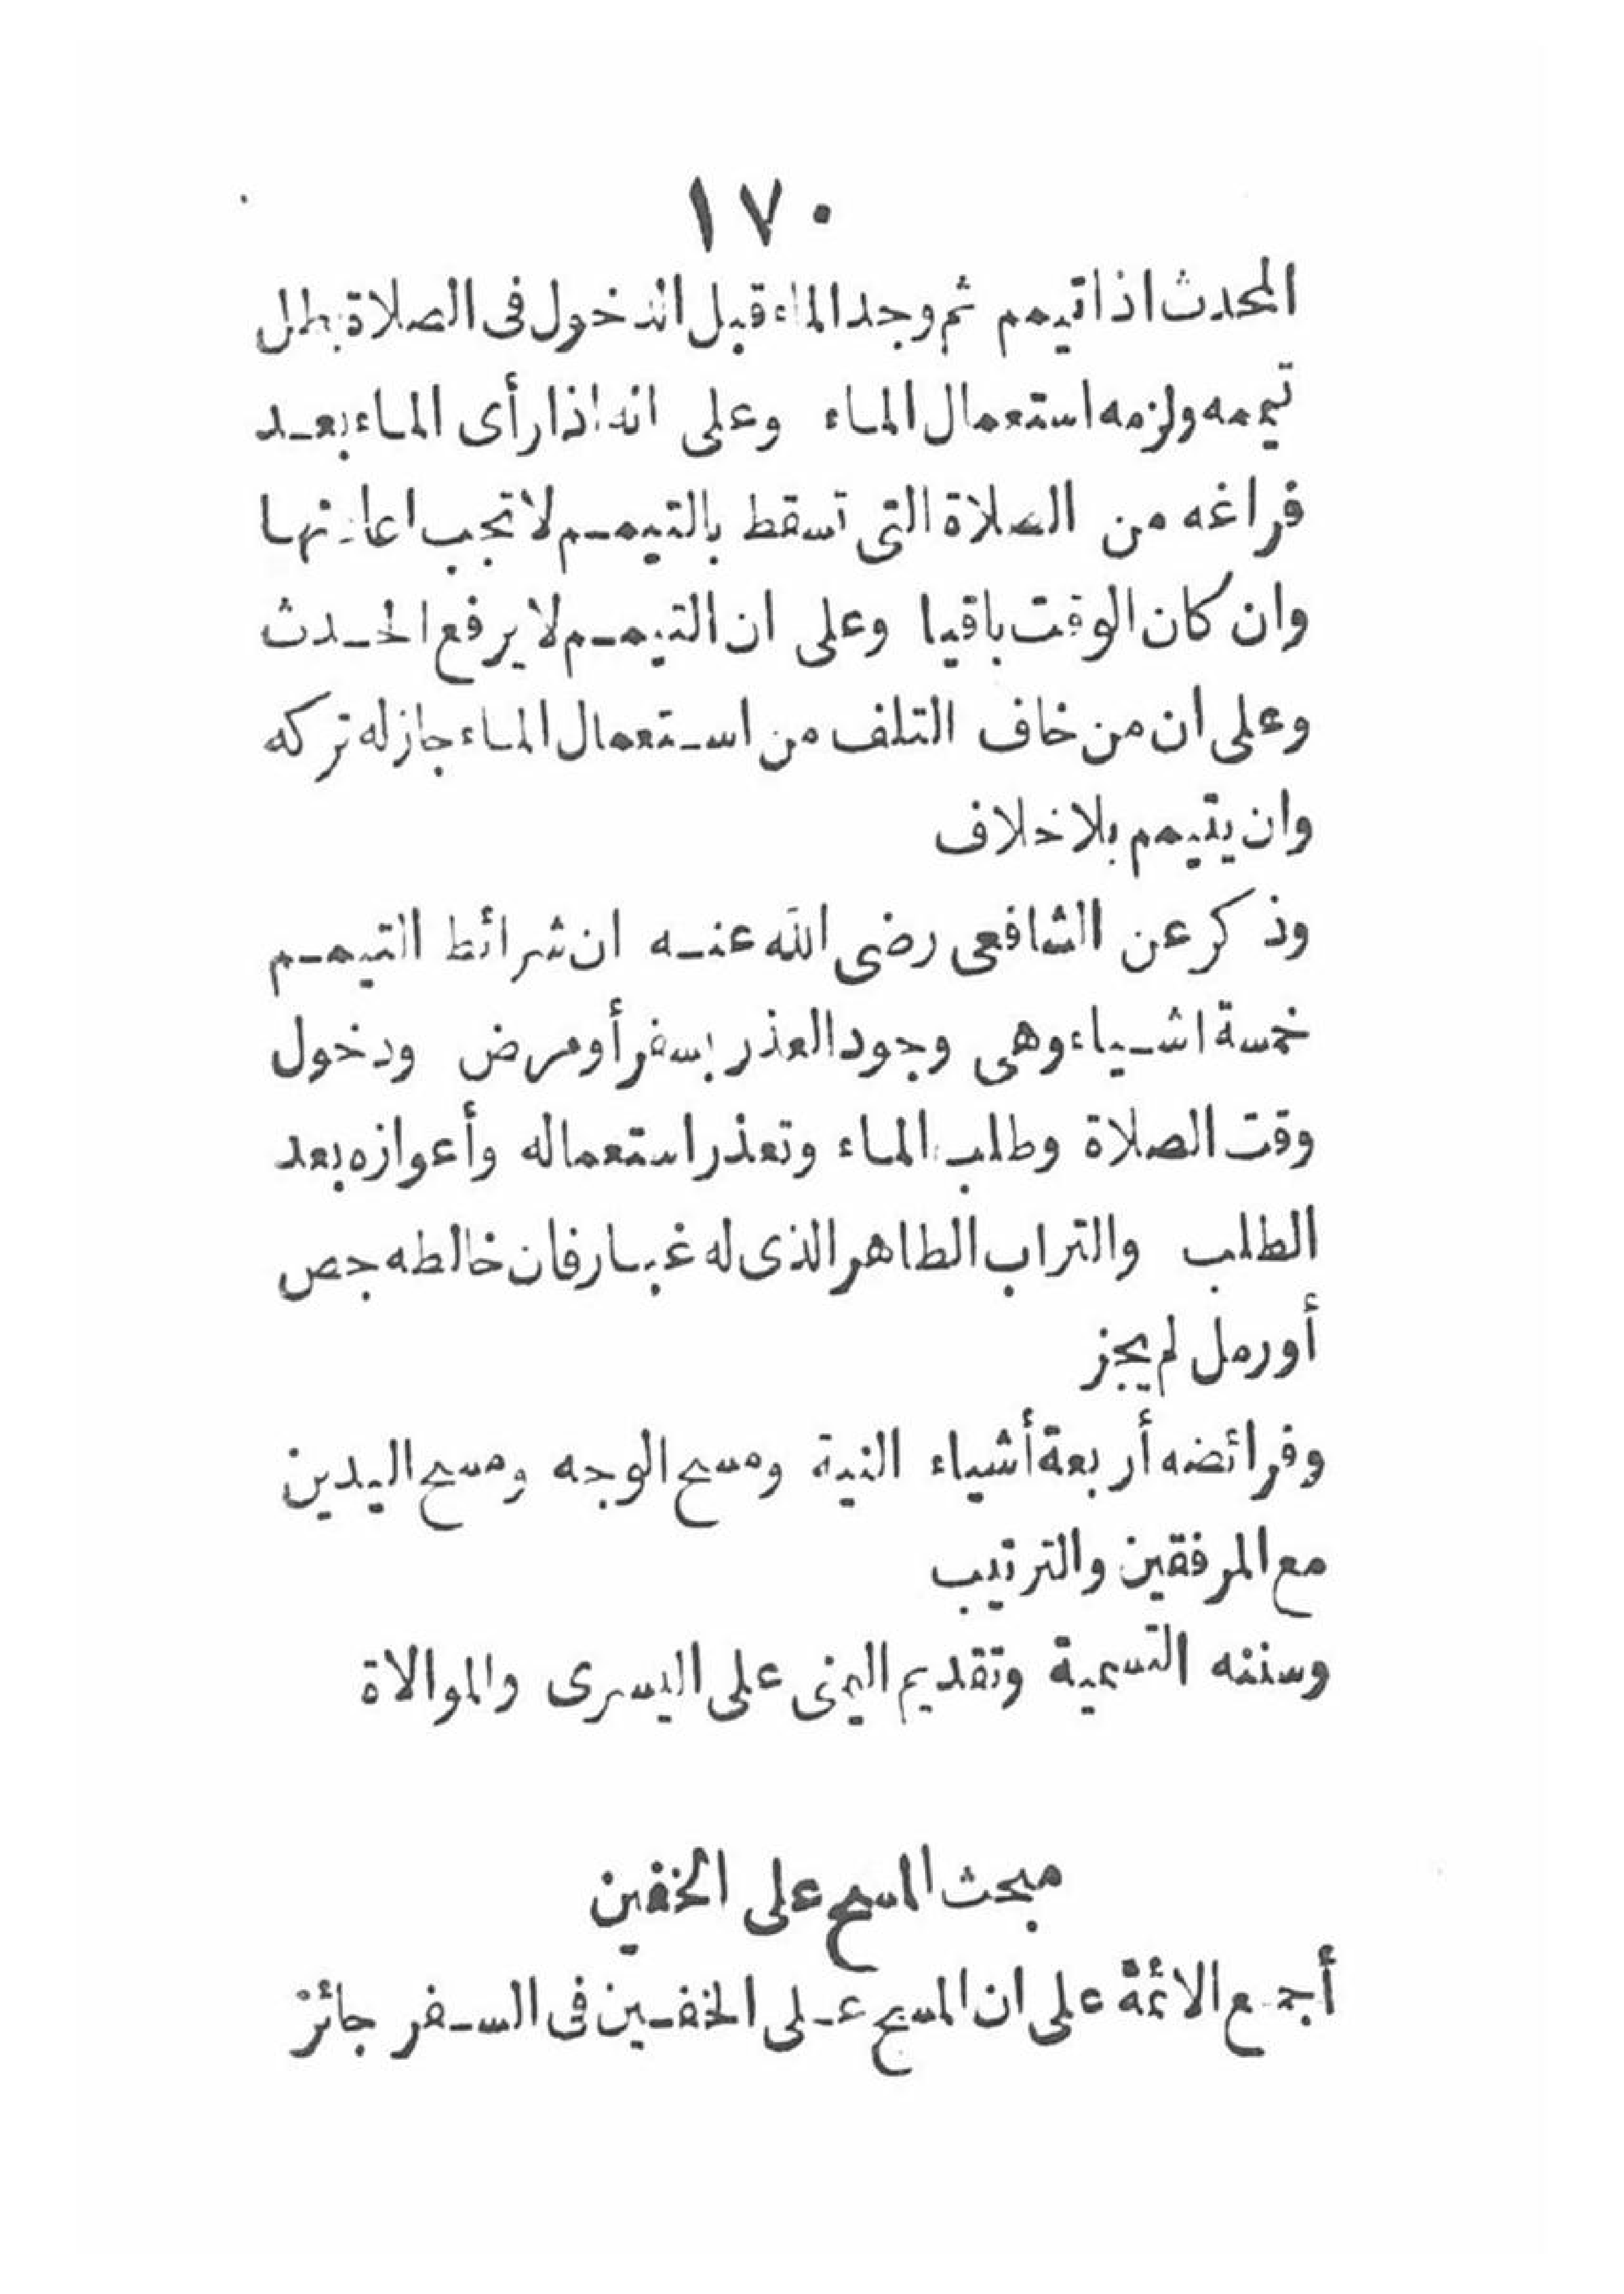 ١٧٠
المحدث اذا تيمم ثم وجد الماء قبل الدخول فى الصلاة بطل
تيممه ولزمه استعمال الماء وعلى انه اذا رأى الماء بعد
فراغه من الصلاة التى تسقط بالتيمم لا تجب اعادتها
وان كان الوقت باقيا وعلى ان التيمم لا يرفع الحدث
وعلى ان من خاف التلف من استعمال الماء جاز له تركه
وان يتيمم بلا خلاف
وذكر عن الشافعى رضى الله عنه ان شرائط التيمم
خمسة اشياء وهى وجود العذر بسفر أو مرض ودخول
وقت الصلاة وطلب الماء وتعذر استعماله وأعوازه بعد
الطلب والتراب الطاهر الذى له غبار فان خالطه جص
أو رمل لم يجز
وفرائضه أربعة أشياء النية ومسح الوجه ومسح اليدين
مع المرفقين والترتيب
وسننه التسمية وتقديم اليمنى على اليسرى والموالاة
مبحث المسح على الخفين
أجمع الائمة على ان المسح على الخفين فى السفر جائز